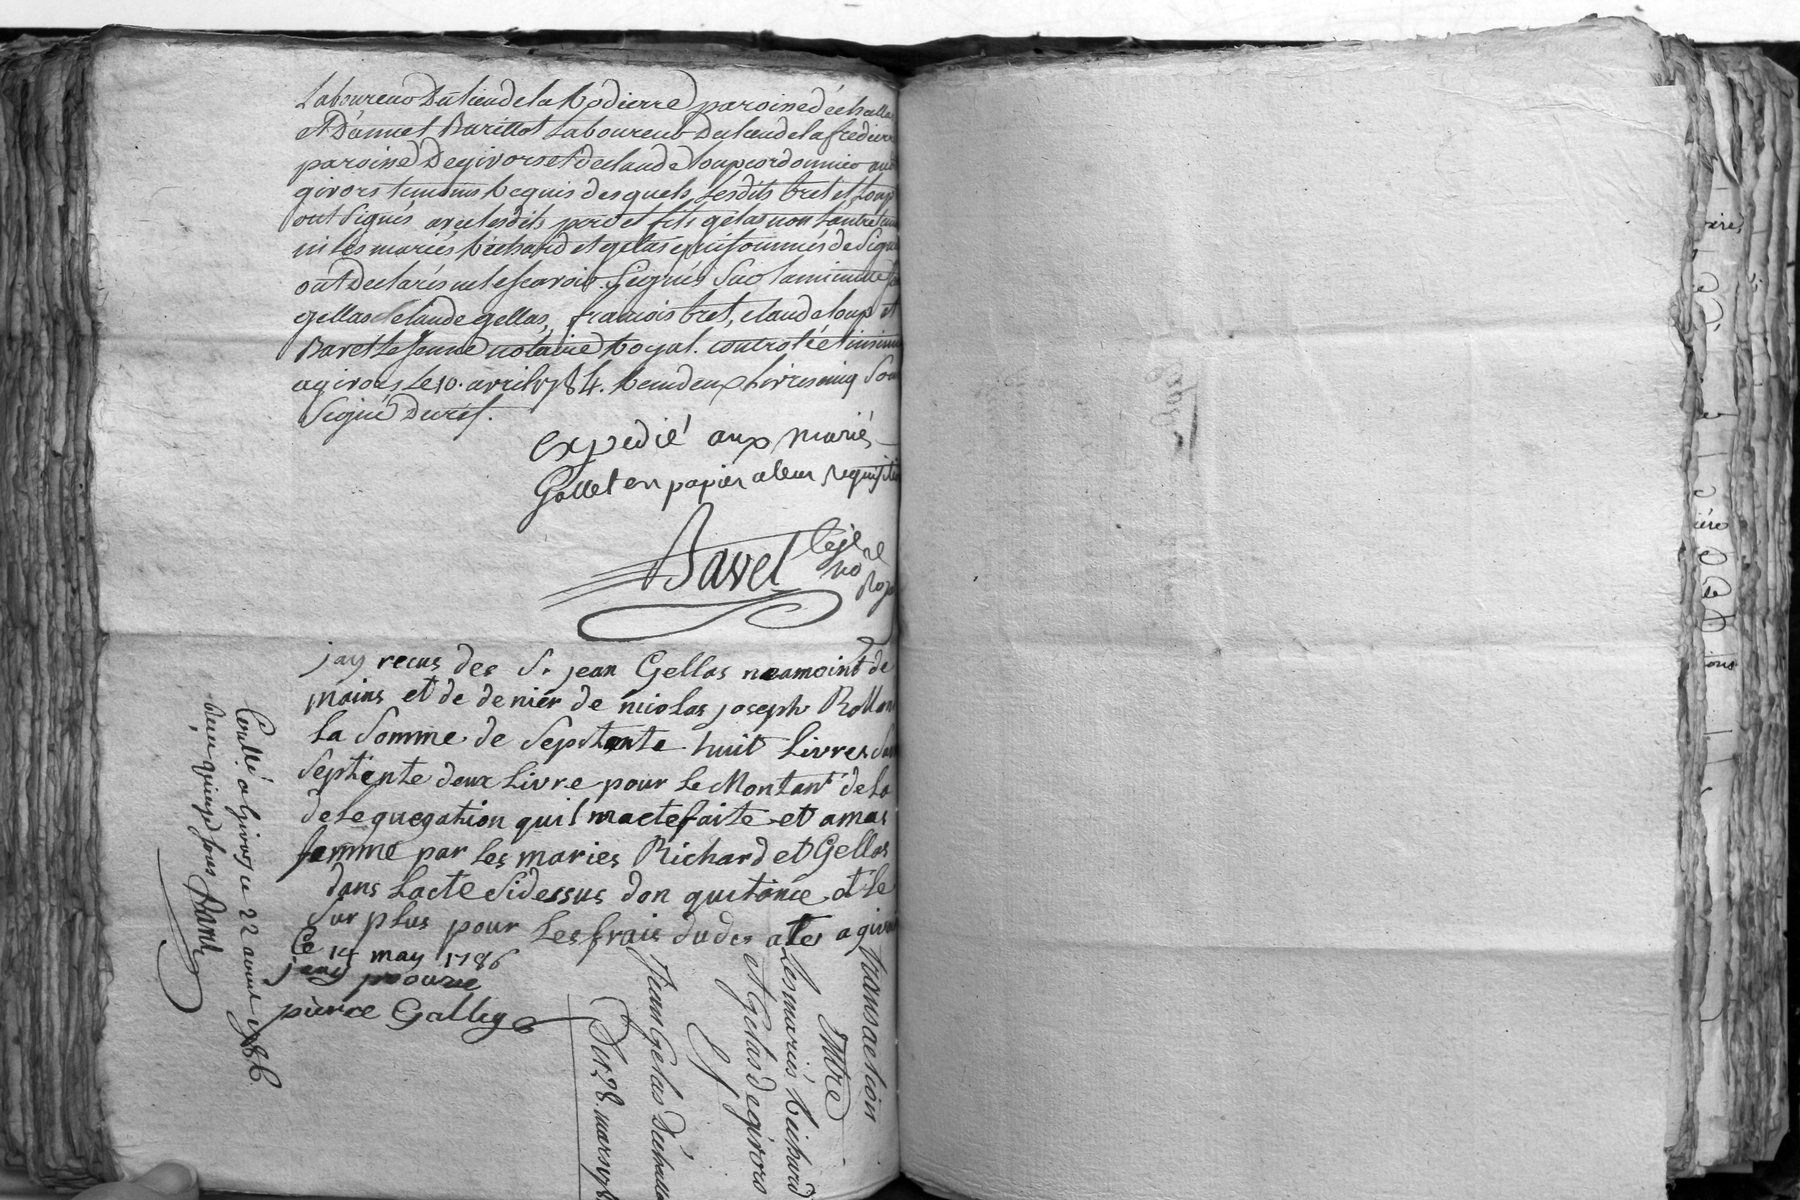 Laboureur Du lieu de la Rodierre paroisse d'échalla
et D'annet Barillot Laboureur Du lieu de la fredierre
paroisse De givors et de claude Loup cordonnier au
givors temoins Requis desquels Lesdits bret et Loup
ont Signés avec lesdits pere et fils gelas non Lautre
ni Les mariés Richard et gelas qui sommés de Signer
ont Declarés ne le scavoir Signés Sur la minutte
gellas Claude gellas, francois bret, claude loup et
Bavet Le Jeune notaire Royal. controlé et insinué
a givors Le 10. avril 1784. Reçu deux Livres cinq Sou
Signé Duret.
expedié aux mariés
Gallet en papier a leur requisition
Bavet Leje
no re
Roya
jay recus des S.r jean Gellas
mains et de denier de nicolas joseph Rollan
La Somme de Septante huit Livres
Septente deux Livre pour Le Montant de la
delequegation quil mactefaite et amas
femme par les maries Richard et Gellas
dans Lacte Sidessus don quitance et le
Surplus pour Les frais dudes ates a givor
Ce 14 may 1786
pierre Galley
Conllé a Givors ce 22 aoust 1786
Recu quinze sous
Transaction
Entre
Les mariés Richard
et Gelas de givors
Et
Jean Gelas D'echalla
Du 28. mars 178